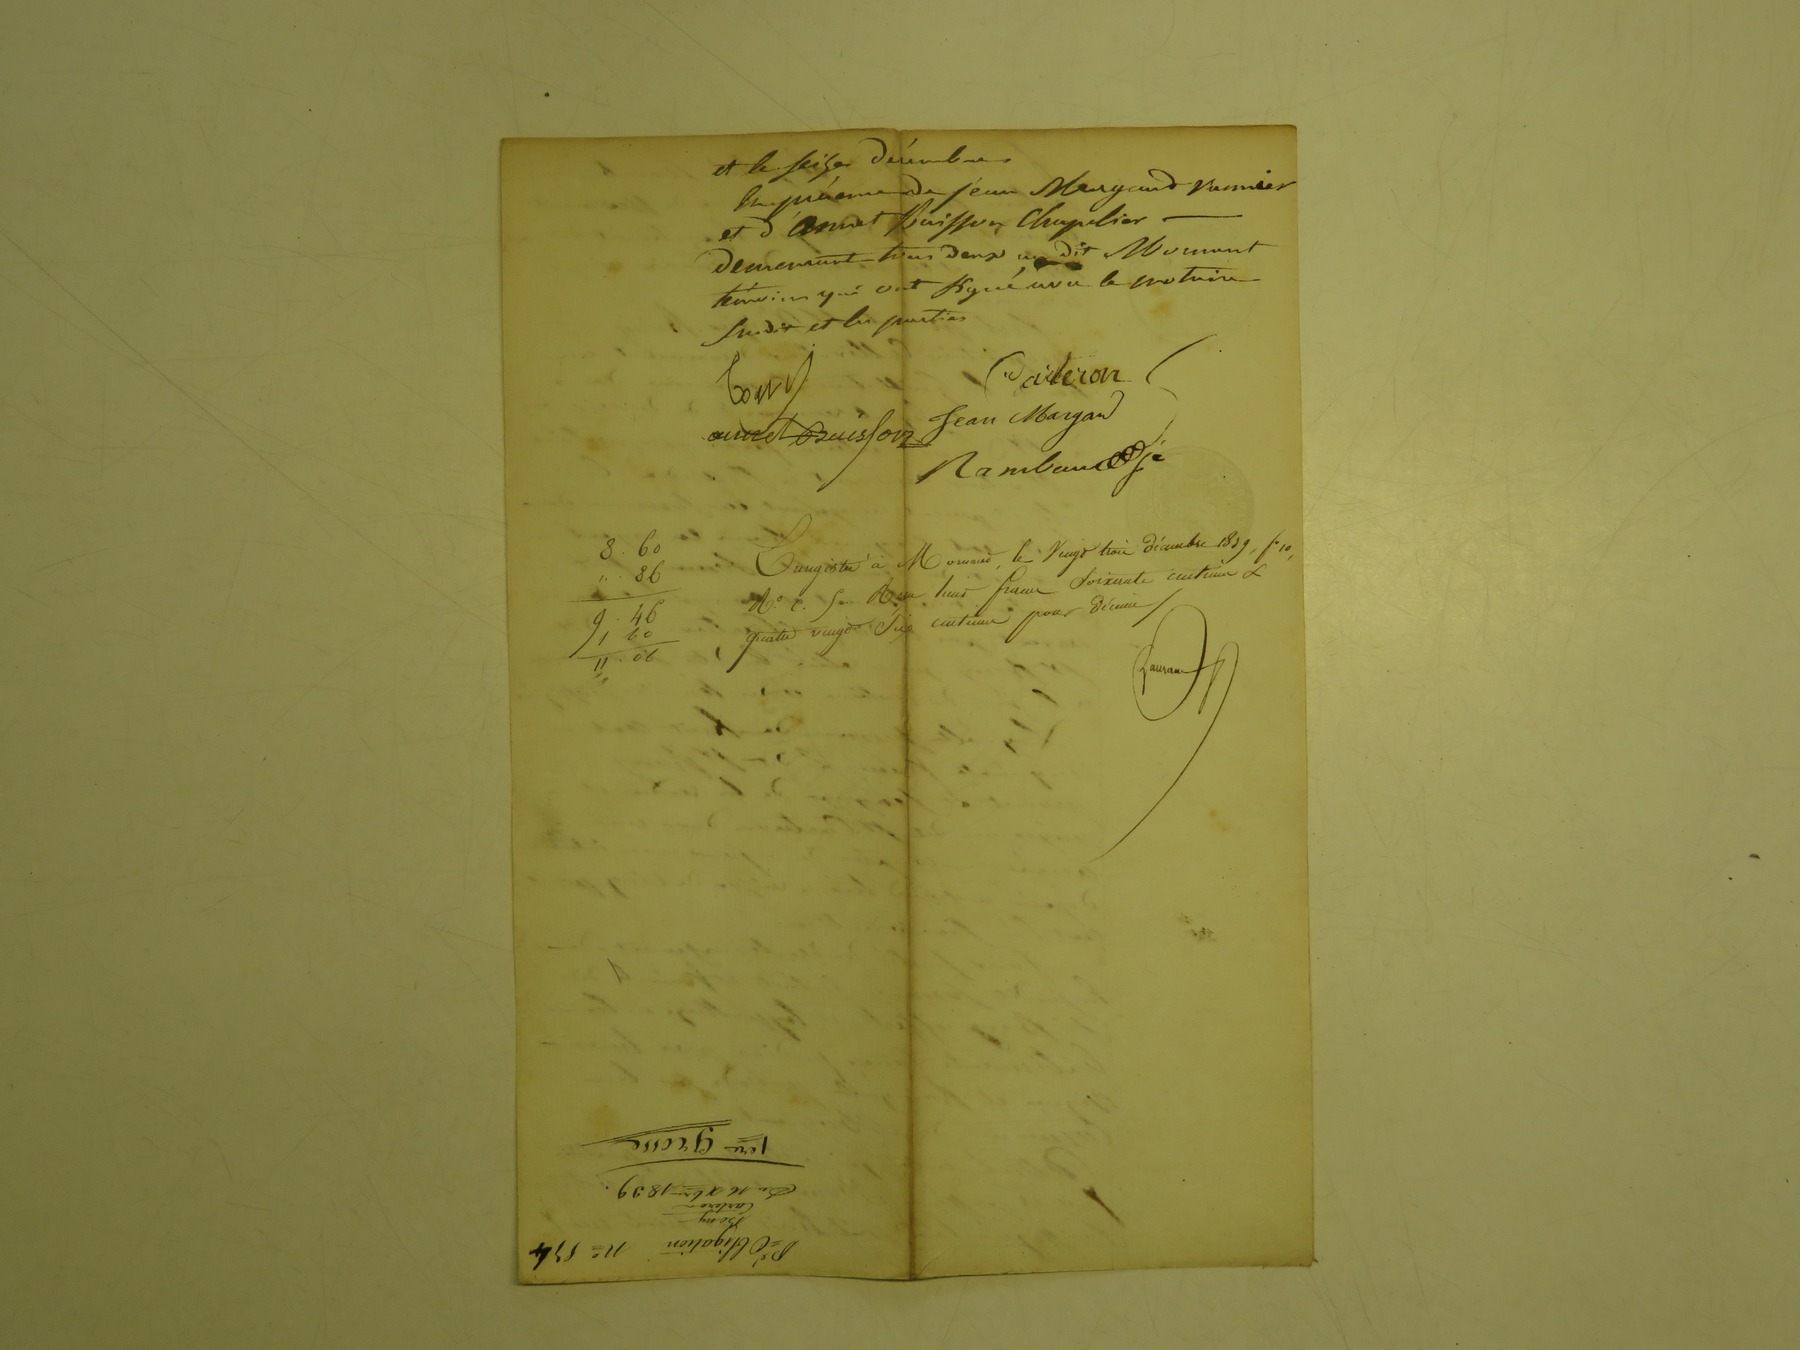 et le seize décembre
En présence de Jean Margand vannier
et d'Annet Buisson Chapelier
demeurant tous deux au dit Mornant
témoins qui ont signé avec le notaire
susdit et les parties
Bony Carteron
annet Buisson Jean Margand
Rambaud
8 . 60
" . 86
9 . 46
1 60
11 . 06
Enregistré à Mornant, le Vingt trois décembre 1839, f° 10,
R° c. 5. Reçu huit francs soixante centimes &
quatre vingt six centimes pour décime
1ere Grosse
Du 16 Xbre 1839.
Carteron
Bony
Obligation N°